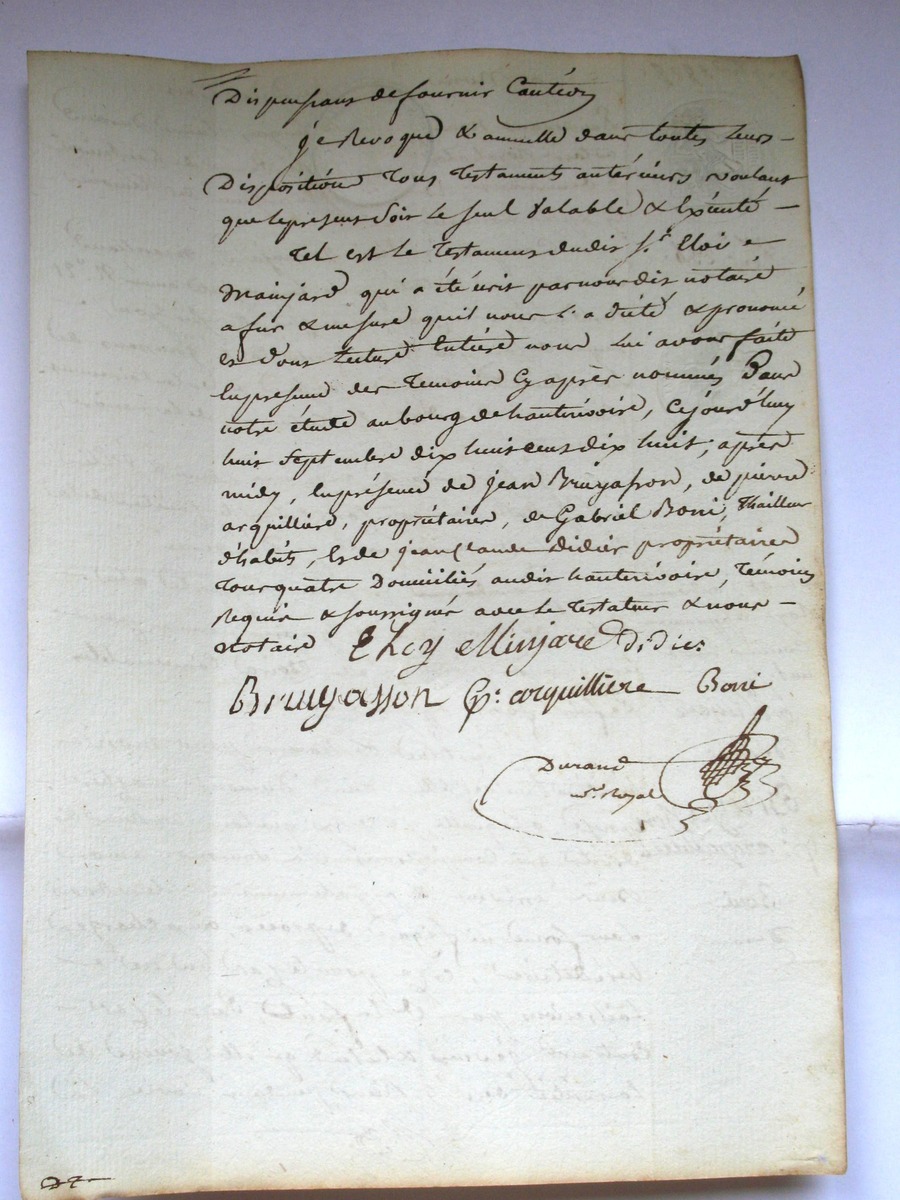 Dispensons de fournir Caution
je Revoque & annulle dans toutes leurs
Disposition Tous Testaments antérieurs voulant
que le present Soit Le Seul Valable & Exécuté
Tel est Le Testament dudit S.r Eloi
Mainjard qui a été écrit par nous dit notaire
a fur & mesure qu'il nous L'a dicté & prononcé
et Dont Lecture Entiere nous Lui avons faite
En présence des Temoins Cy après nommés Dans
notre étude au bourg de hauterivoire, Cejourd'huy
huit Septembre dix huit cens dix huit, après
midy, En présence de jean Bruyasson, de pierre
arquilliere, propriétaires, de Gabriel Boni, Thailleur
d'habits, Et de jean Claude Didier propriétaires
Tous quatre Domiciliés audit hauterivoire, Témoins
Requis & Soussignés avec Le Testateur & nous
notaire Eloy Minjare Didier
Bruyasson p. arquilliere Boni
Durand
n.re Royal